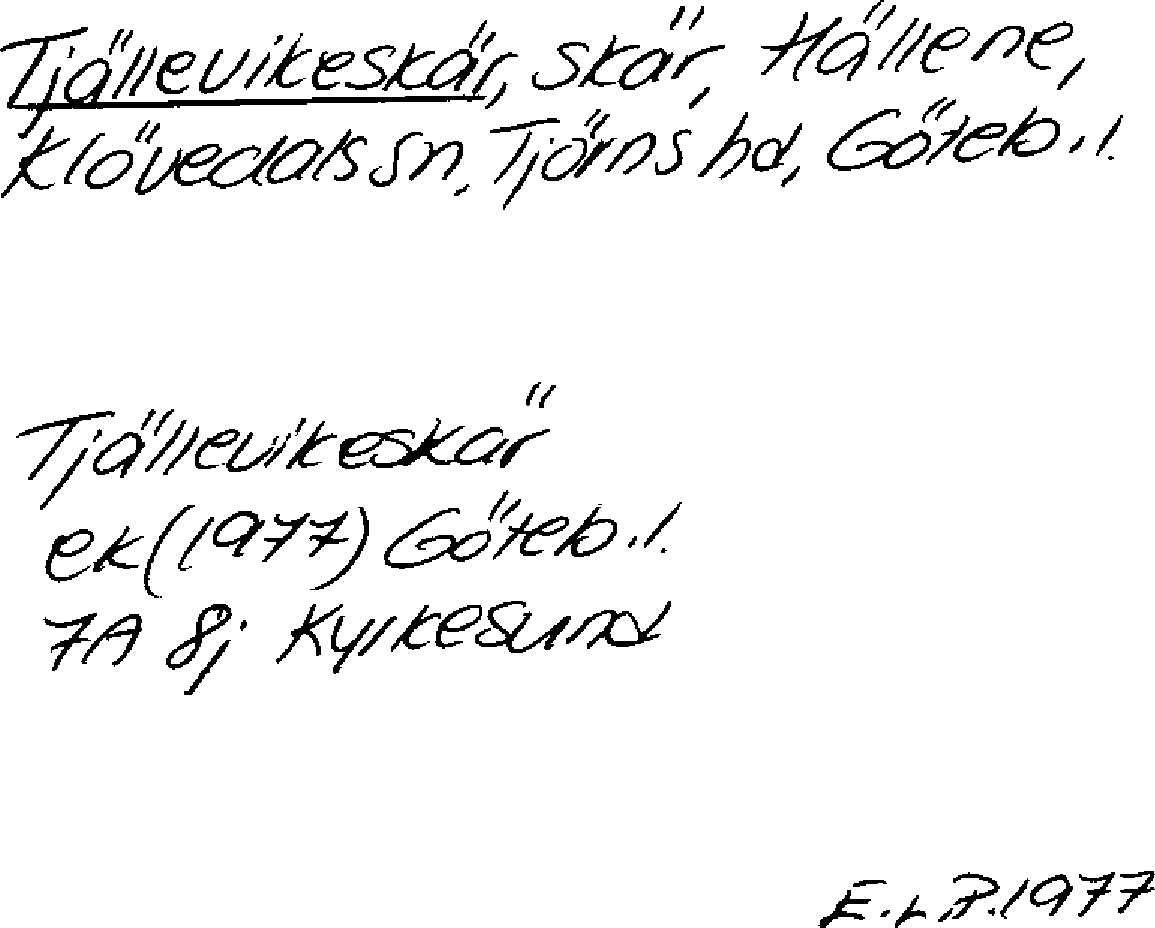 Tjällevikeskär, skär, Hällene,
Klövedals sn, Tjörns hd, Göteb.l.
Tjällevikeskär
ek(1977) Göteb.l.
7A 8j Kyrkesund
E.L.P.1977